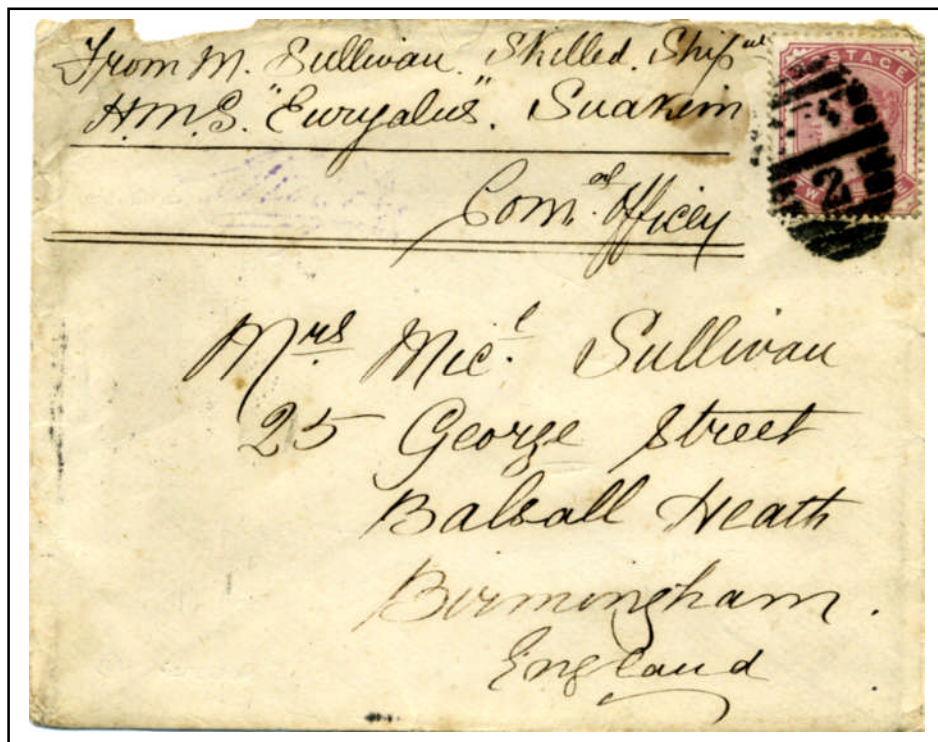 From M. Sullivan. Skilled. Ship
H.M.S. "Euryalus". Suakim
Com.
Mrs Mic.l Sullivan
25 George Street
Balsall Heath
Birmingham.
England
POSTAGE